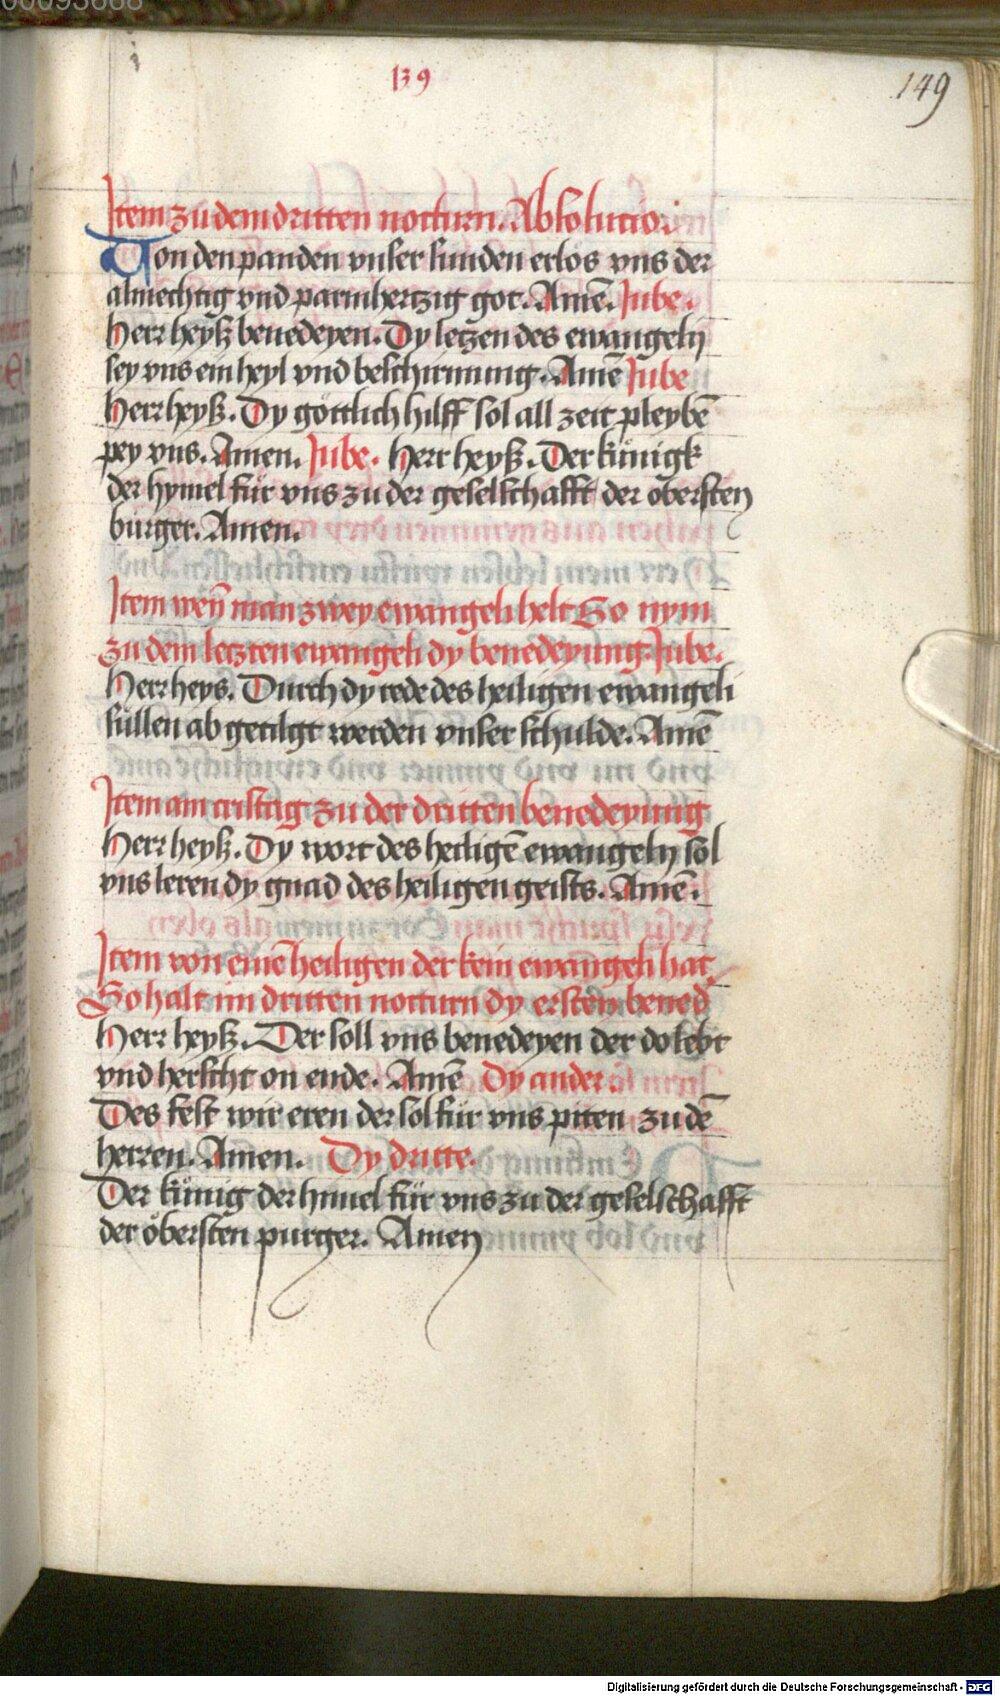 139
149
Item zu dem dritten nocturn. Absolutio.
Von den panden vnser sunden erlos vns der
almechtig vnd parmhertzig got. Amē. Jube.
Herr heyß benedeyen. Dy letzen des ewangely
sey vns ein heyl vnd beschirmung. Amē Jube
Herr heyß. Dy göttlich hilff sol all zeit pleybē
pey vns. Amen. Jube. Herr heyß. Der künigk
der hymel für vns zu der geselschafft der öbersten
bürger. Amen.
Item weñ man zwey ewangeli helt So nym
zu dem letzten ewangeli dy benedeyung. Jube.
Herr heys. Durch dy rede des heiligen ewangeli
süllen ab getilgt werden vnser schulde. Amē
Item am cristag zu der dritten benedeyung
Herr heyß. Dy wort des heiligē ewangely sol
vns leren dy gnad des heiligen geists. Amē.
Item von einē heiligen der kein ewangeli hat
So halt im dritten nocturn dy ersten bened
Herr heyß. Der soll vns benedeyen der do lebt
vnd herscht on ende. Amē Dy ander.
Des fest wir eren der sol für vns piten zu dē
herren. Amen. Dy dritte.
Der künig der himel für vns zu der geselschafft
der öbersten purger. Amen
Digitalisierung gefördert durch die Deutsche Forschungsgemeinschaft - DFG